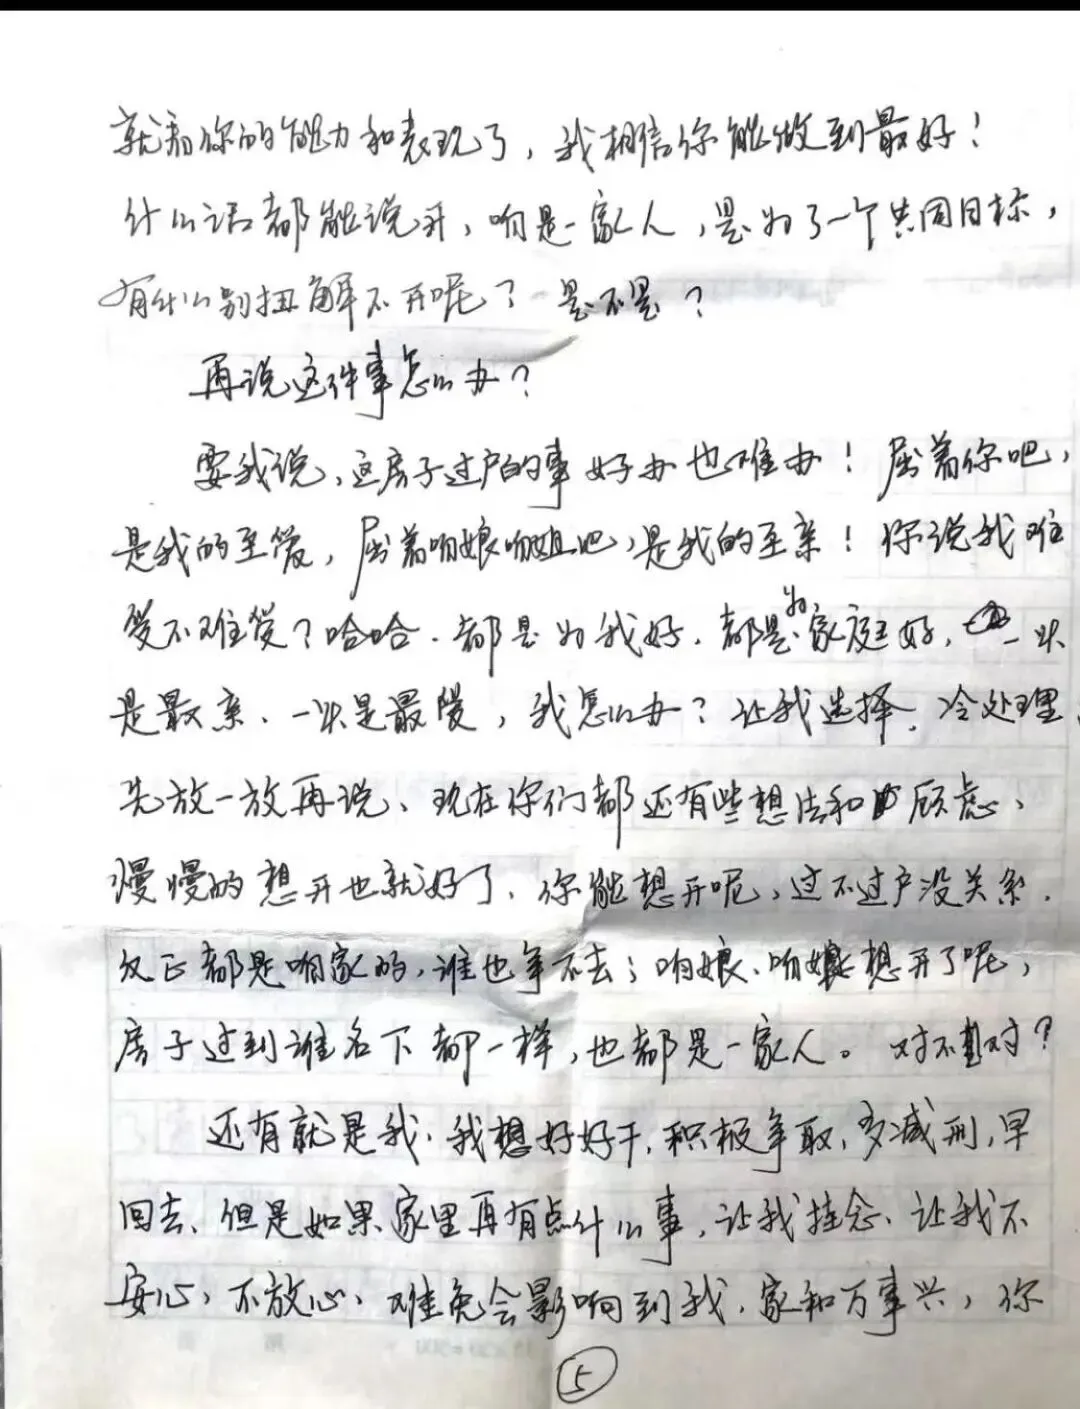 就看你的能力和表现了，我相信你能做到最好！
什么话都能说开，咱是一家人，是为了一个共同目标，
有什么别扭解不开呢？是不是？
再说这件事怎么办？
要我说，这房子过户的事好办也难办！屈着你吧，
是我的至爱，屈着咱娘咱姐吧，是我的至亲！你说我难
受不难受？哈哈．都是为我好．都是为家庭好，一块
是最亲、一块是最爱，我怎么办？让我选择，冷处理，
先放一放再说、现在你们都还有些想法和顾虑、
慢慢的想开也就好了、你能想开呢，过不过户没关系．
反正都是咱家的，谁也争不去；咱娘、咱姐想开了呢，
房子过到谁名下都一样，也都是一家人。对不对？
还有就是我．我想好好干，积极争取，多减刑，早
回去、但是如果家里再有点什么事，让我挂念、让我不
安心、不放心、难免会影响到我．家和万事兴，你
5